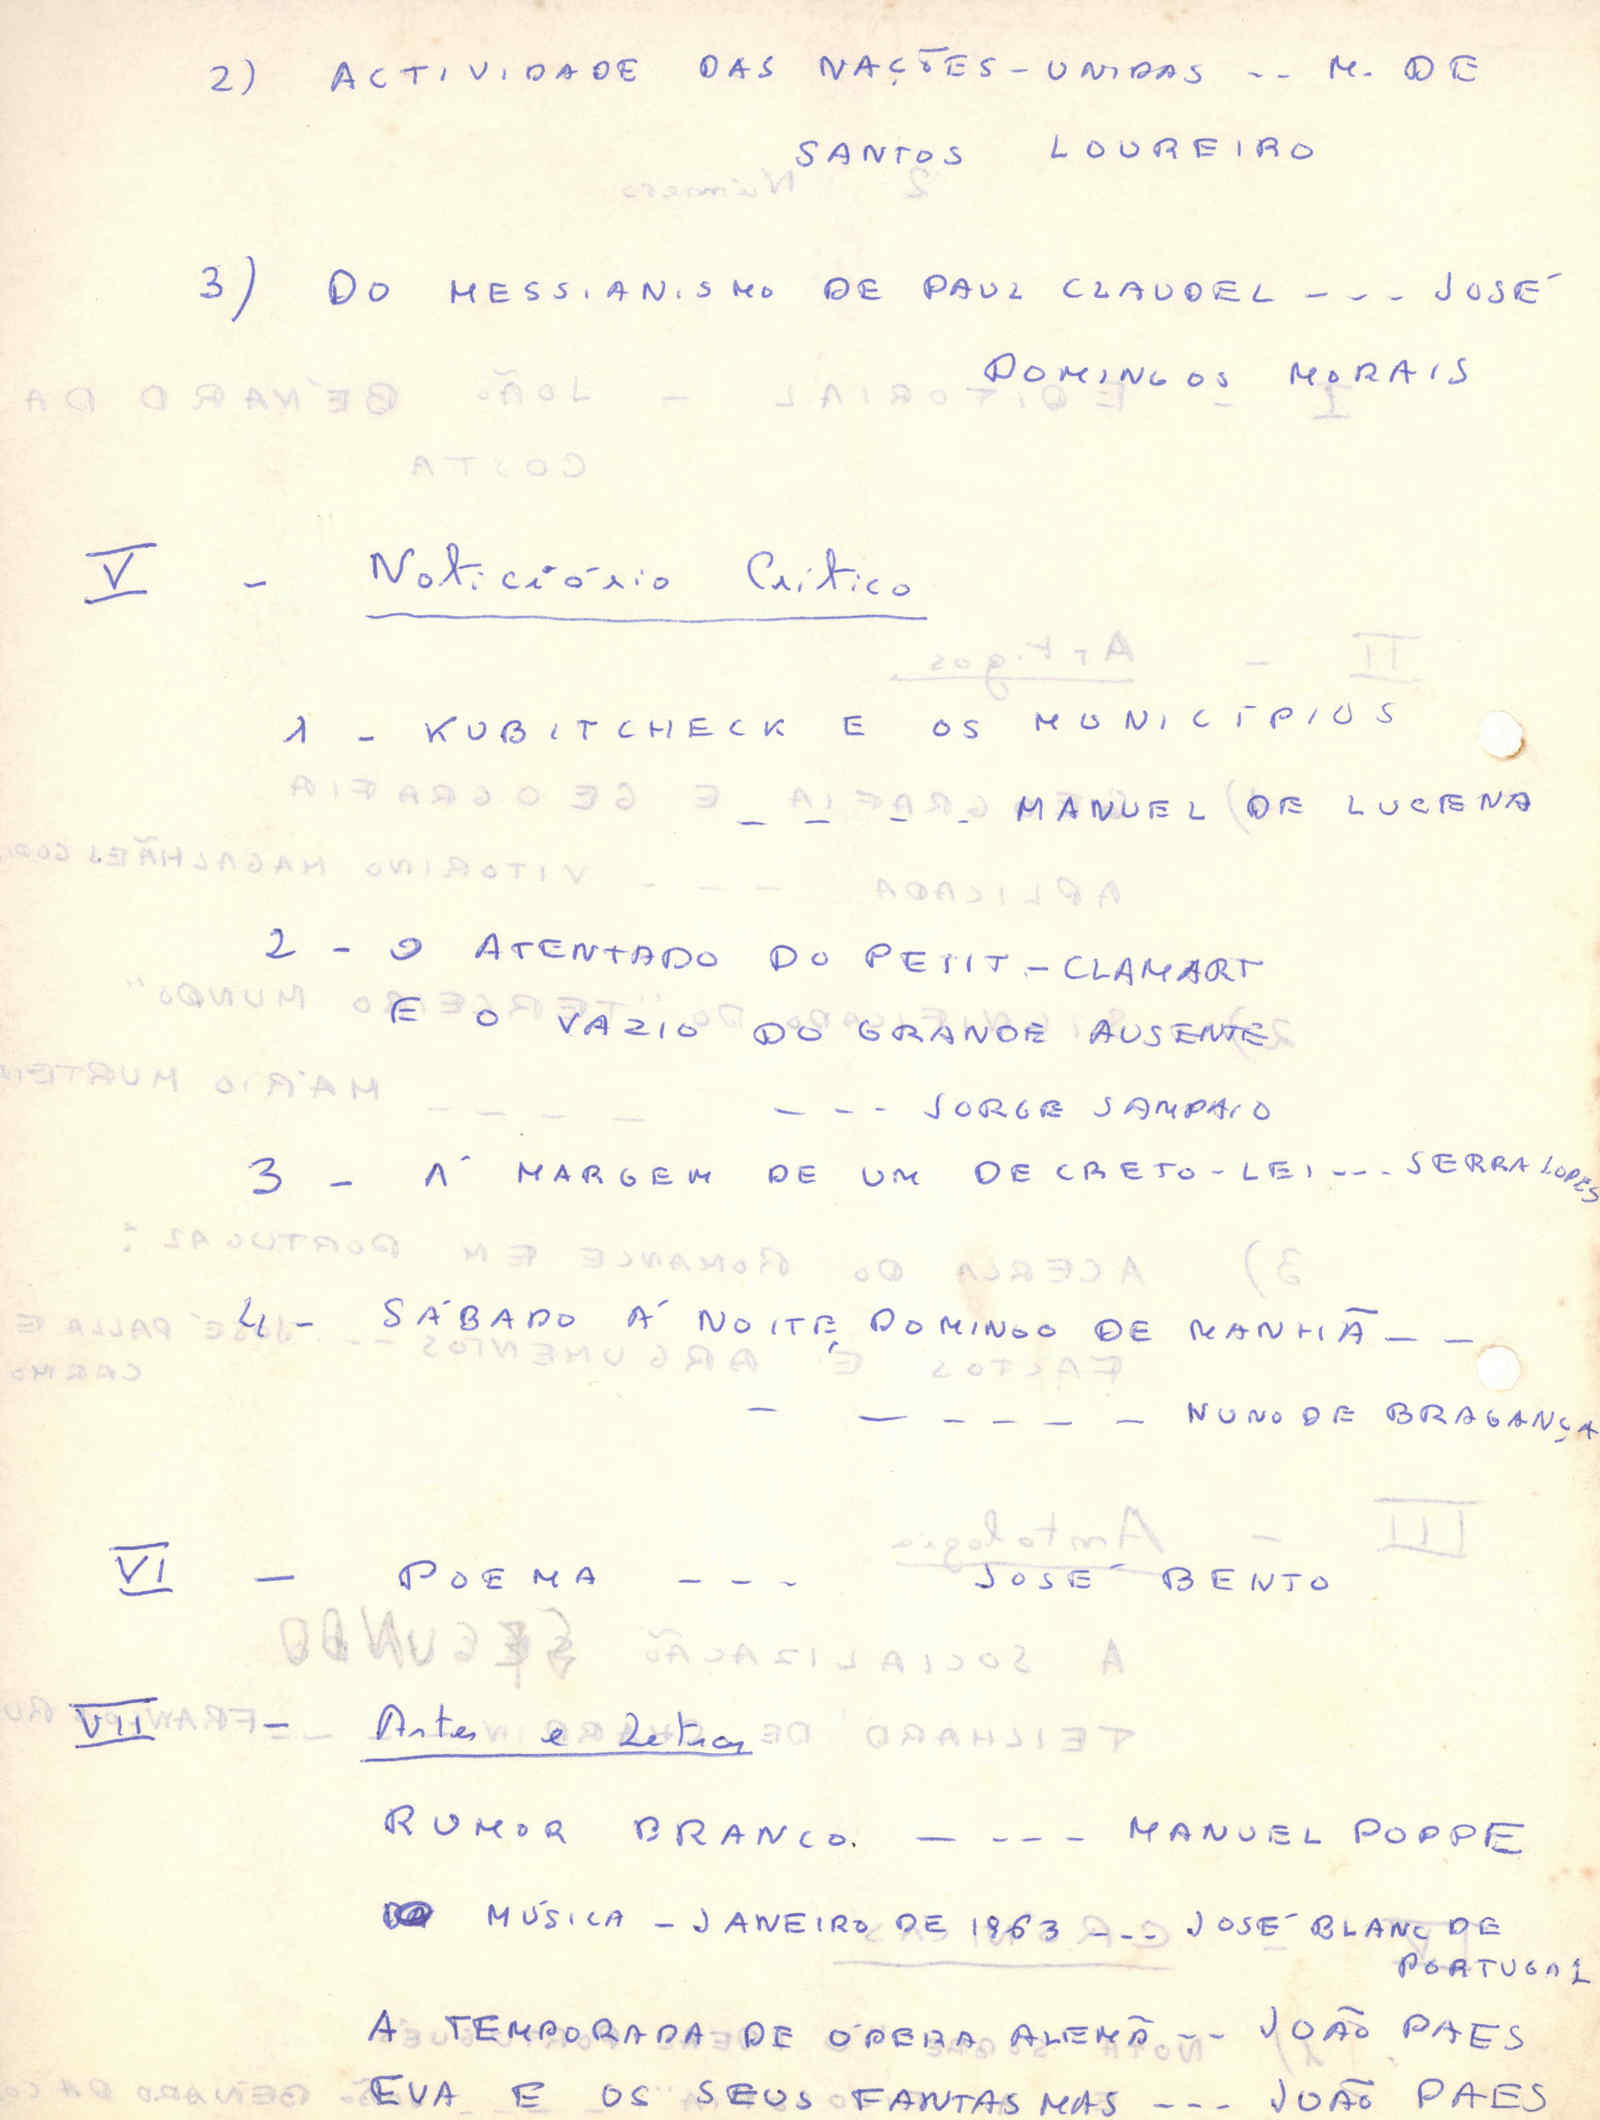 2) ACTIVIDADE DAS NAÇÕES-UNIDAS -- M. DE
SANTOS LOUREIRO
3) DO MESSIANISMO DE PAUL CLAUDEL --- JOSÉ
DOMINGOS MORAIS
V - Noticiário Crítico
1 - KUBITCHECK E OS MUNICÍPIOS
---- MANUEL DE LUCENA
2 - O ATENTADO DO PETIT-CLAMART
E O VAZIO DO GRANDE AUSENTE
--- JORGE SAMPAIO
3 - À MARGEM DE UM DECRETO-LEI --- SERRA LOPES
4 - SÁBADO Á NOITE, DOMINGO DE MANHÃ --
------ NUNO DE BRAGANÇA
VI - POEMA --- JOSÉ BENTO
VII - Artes e Letras
RUMOR BRANCO. ---- MANUEL POPPE
MÚSICA - JANEIRO DE 1963 --- JOSÉ BLANC DE
PORTUGAL
A TEMPORADA DE ÓPERA ALEMÃ -- JOÃO PAES
EVA E OS SEUS FANTASMAS --- JOÃO PAES